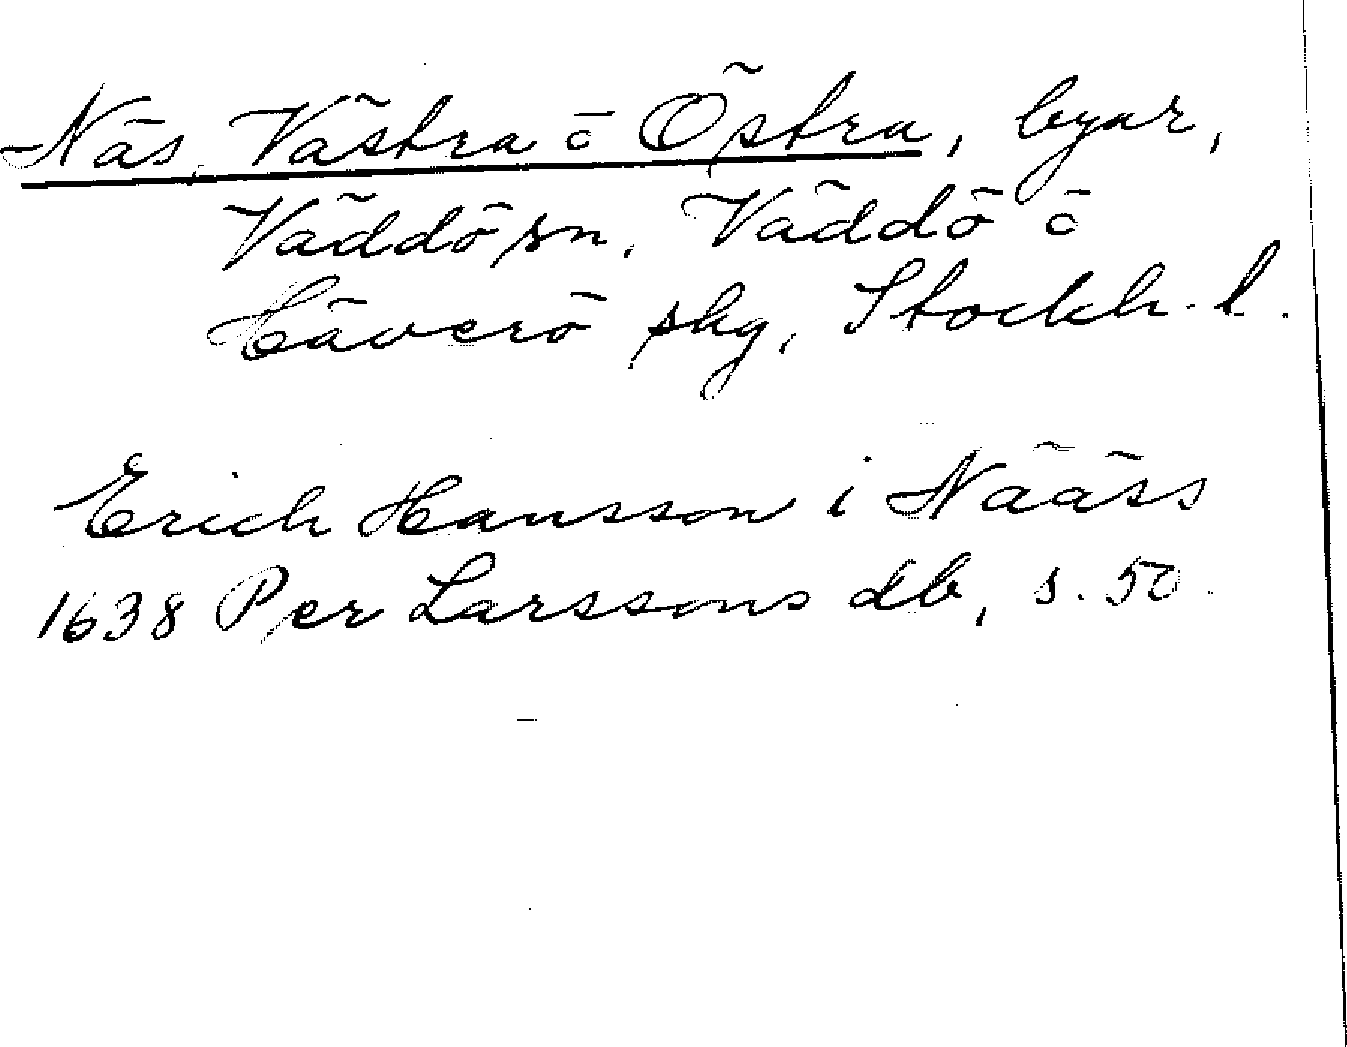 Näs, Västra ö Östra, byar,
Väddö sn, Väddö ö
Häverö skg, Stockh. l.
Erich Hansson i Nääss
1638 Per Larssons db, s. 50.